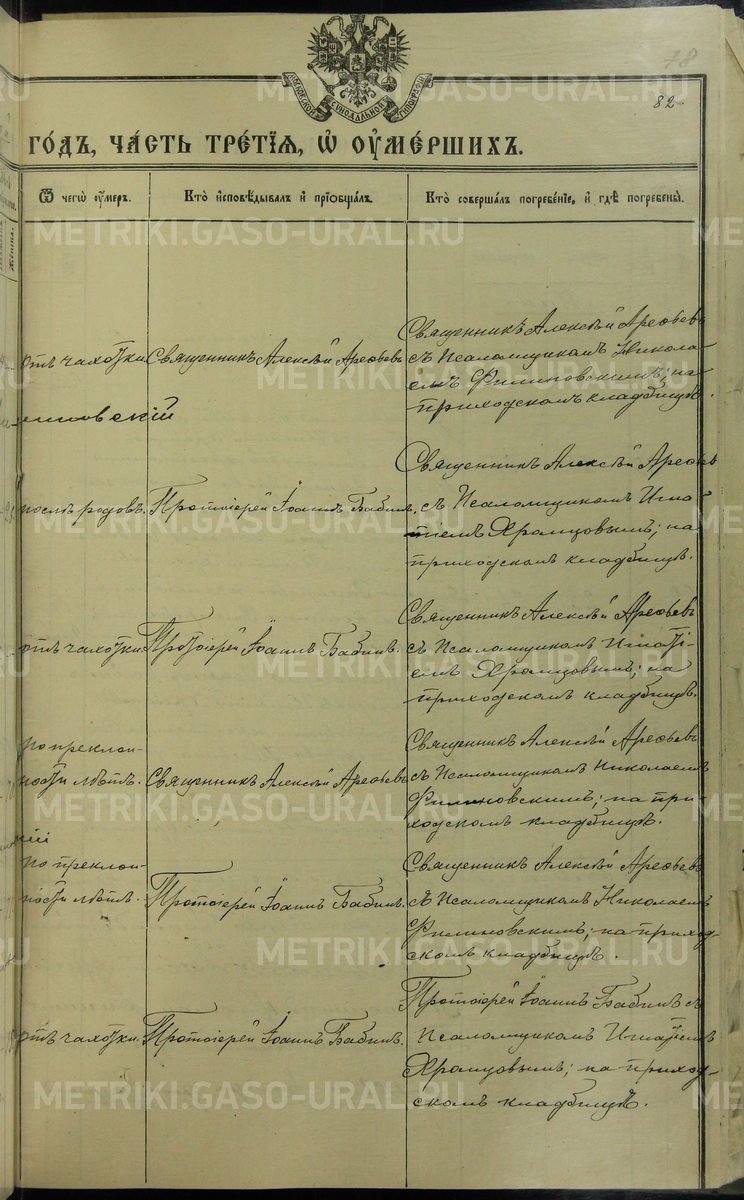 78
82
МОСКОВСКОЙ СѴНОДАЛЬНОЙ ТИПОГРАФІИ
ГО́ДЪ, ЧА́СТЬ ТРЕ́ТІЯ, Ѡ҆ ОУ҆МЕ́РШИХЪ.
Ѿ чегѡ̀ оу҆́меръ.
Кто̀ и҆сповѣ́дывалъ и҆ прїѡбща́лъ.
Кто̀ соверша́лъ погребе́нїе, и҆ гдѣ̀ погребены̀.
отъ чахотки.
Священникъ Алексѣй Арефьевъ
Священникъ Алексѣй Арефьевъ
съ Псаломщикомъ Никола-
емъ Филиновскимъ; на
приходскомъ кладбищѣ.
послѣ родовъ.
Протоіерей Іоаннъ Бабинъ.
Священникъ Алексѣй Арефьевъ
съ Псаломщикомъ Игна-
тіемъ Храмцовымъ; на
приходскомъ кладбищѣ.
отъ чахотки.
Протоіерей Іоаннъ Бабинъ.
Священникъ Алексѣй Арефьевъ
съ Псаломщикомъ Игнаті-
емъ Храмцовымъ; на
приходскомъ кладбищѣ.
по преклон-
ности лѣтъ.
Священникъ Алексѣй Арефьевъ
Священникъ Алексѣй Арефьевъ
съ Псаломщикомъ Николаемъ
Филиновскимъ; на при-
ходскомъ кладбищѣ.
по преклон-
ности лѣтъ.
Протоіерей Іоаннъ Бабинъ.
Священникъ Алексѣй Арефьевъ
съ Псаломщикомъ Николаемъ
Филиновскимъ; на приход-
скомъ кладбищѣ.
отъ чахотки.
Протоіерей Іоаннъ Бабинъ.
Протоіерей Іоаннъ Бабинъ съ
Псаломщикомъ Игнатіемъ
Храмцовымъ; на приход-
скомъ кладбищѣ.
METRIKI.GASO-URAL.RU
METRIKI.GASO-URAL.RU
METRIKI.GASO-URAL.RU
METRIKI.GASO-URAL.RU
METRIKI.GASO-URAL.RU
METRIKI.GASO-URAL.RU
METRIKI.GASO-URAL.RU
METRIKI.GASO-URAL.RU